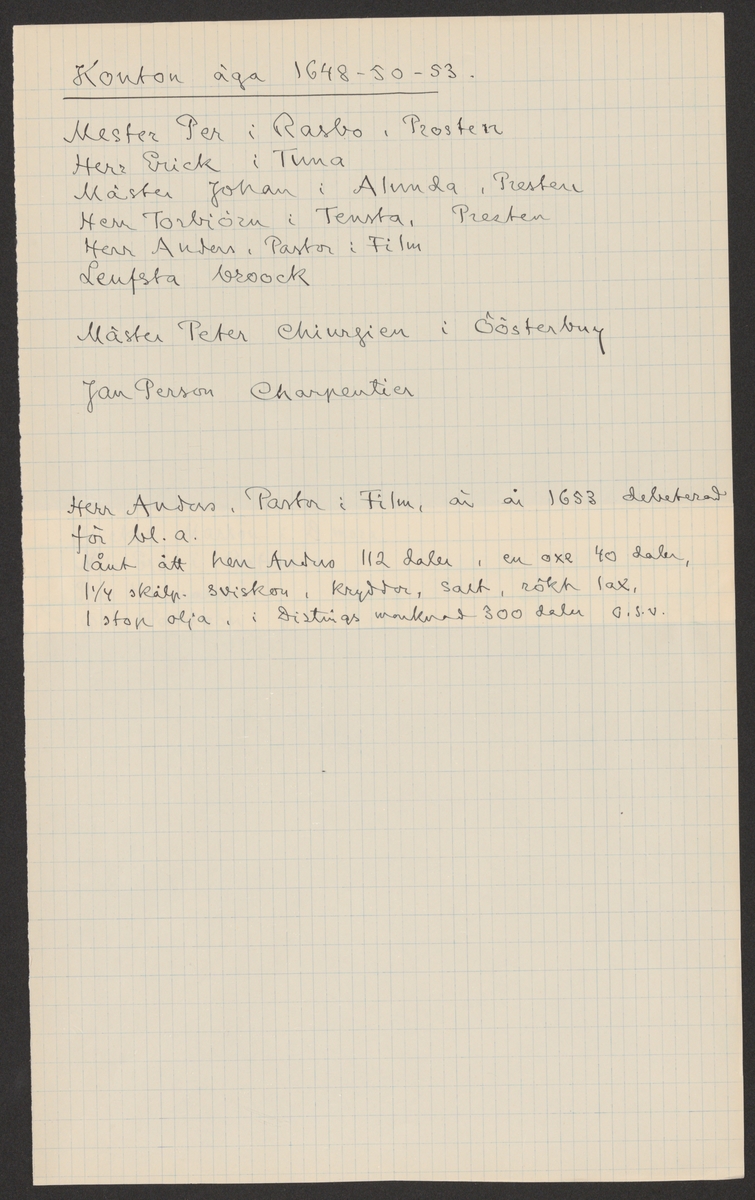 Konton äga 1648-50-53.
Mester Per i Rasbo, Prosten
Herr Erick i Tuna
Mäster Johan i Alunda, Presten
Herr Torbiörn i Tensta, Presten
Herr Anders, Pastor i Film
Leufsta broock
Mäster Peter Chiurgien i Öösterbuy
Jan Person Charpentier
Herr Anders, Pastor i Film, är år 1653 debeterad
för bl.a.
lånt ått herr Anders 112 daler, en oxe 40 daler,
1 1/4 skålp. sviskon, kryddor, salt, rökt lax,
1 stop olja, i Distings marknad 300 daler o.s.v.